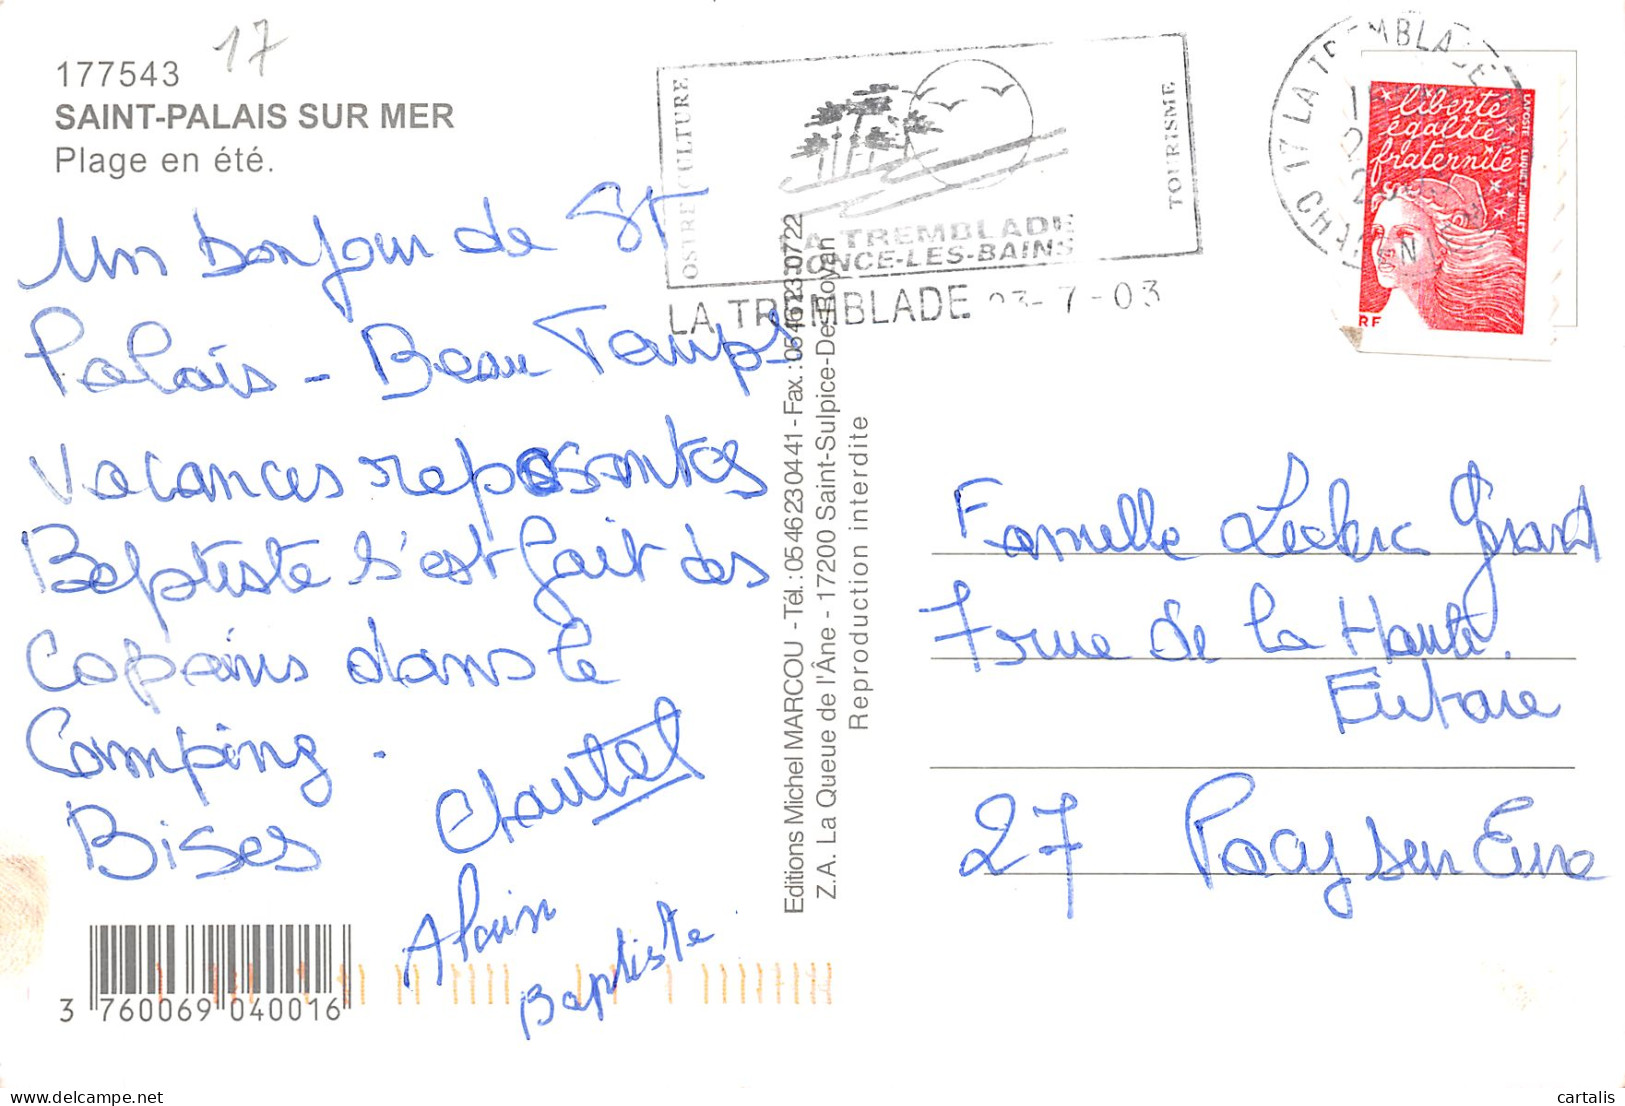 17
177543
SAINT-PALAIS SUR MER
Plage en été.
Un bonjour de St
Palais - Beau Temps
Vacances reposantes
Baptiste s'est fait des
Copains dans le
Camping.
Bises Chantal
Alain
Baptiste
3 760069 040016
Editions Michel MARCOU - Tél.: 0546230441 - Fax.: 0546230722
Z.A. La Queue de l'Âne - 17200 Saint-Sulpice-De-Royan
Reproduction interdite
OSTREICULTURE
TOURISME
LA TREMBLADE
RONCE-LES-BAINS
LA TREMBLADE 03-7-03
17 LA TREMBLADE
liberté
égalité
fraternité
LA POSTE
LUQUET-JUMELET
RF
Famille Leclerc Gérard
7 rue de la Haute
27 Pacy sur Eure
cartalis